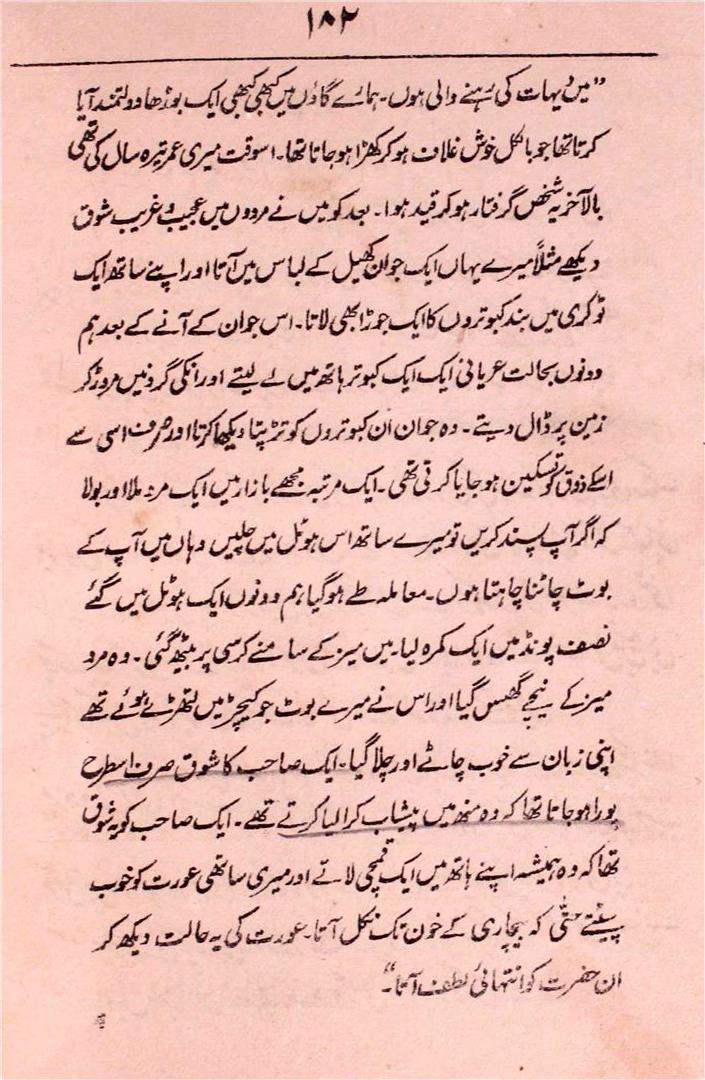 ۱۸۲
”میں دیہات کی رہنے والی ہوں۔ ہمارے گاؤں میں کبھی کبھی ایک بوڑھا دولتمند آیا
کرتا تھا جو بالکل خوش غلاف ہو کر کھڑا ہو جاتا تھا۔ اسوقت میری عمر تیرہ سال کی تھی
بالآخر یہ شخص گرفتار ہو کر قید ہوا۔ بعد کو میں نے مردوں میں عجیب و غریب شوق
دیکھے مثلاً میرے یہاں ایک جوان کھیل کے لباس میں آتا اور اپنے ساتھ ایک
ٹوکری میں بند کبوتروں کا ایک جوڑا بھی لاتا۔ اس جوان کے آنے کے بعد ہم
دونوں بحالت عریانی ایک ایک کبوتر ہاتھ میں لے لیتے اور انکی گردنیں مروڑ کر
زمین پر ڈال دیتے۔ وہ جوان اُن کبوتروں کو تڑپتا دیکھا کرتا اور صرف اسی سے
اسکے ذوق کو تسکین ہو جایا کرتی تھی۔ ایک مرتبہ مجھے بازار میں ایک مرد ملا اور بولا
کہ اگر آپ پسند کریں تو میرے ساتھ اس ہوٹل میں چلیں وہاں میں آپ کے
بوٹ چاٹنا چاہتا ہوں۔ معاملہ طے ہوگیا ہم دونوں ایک ہوٹل میں گئے
نصف پونڈ میں ایک کمرہ لیا۔ میں میز کے سامنے کرسی پر بیٹھ گئی۔ وہ مرد
میز کے نیچے گھس گیا اور اس نے میرے بوٹ جو کیچڑ میں لتھڑے ہوئے تھے
اپنی زبان سے خوب چاٹے اور چلا گیا۔ ایک صاحب کا شوق صرف اسطرح
پورا ہو جاتا تھا کہ وہ منھ میں پیشاب کرا لیا کرتے تھے۔ ایک صاحب کو یہ شوق
تھا کہ وہ ہمیشہ اپنے ہاتھ میں ایک قمچی لاتے اور میری ساتھی عورت کو خوب
پیٹتے حتّٰی کہ بیچاری کے خون تک نکل آتا۔ عورت کی یہ حالت دیکھ کر
ان حضرت کو انتہائی لطف آتا۔“